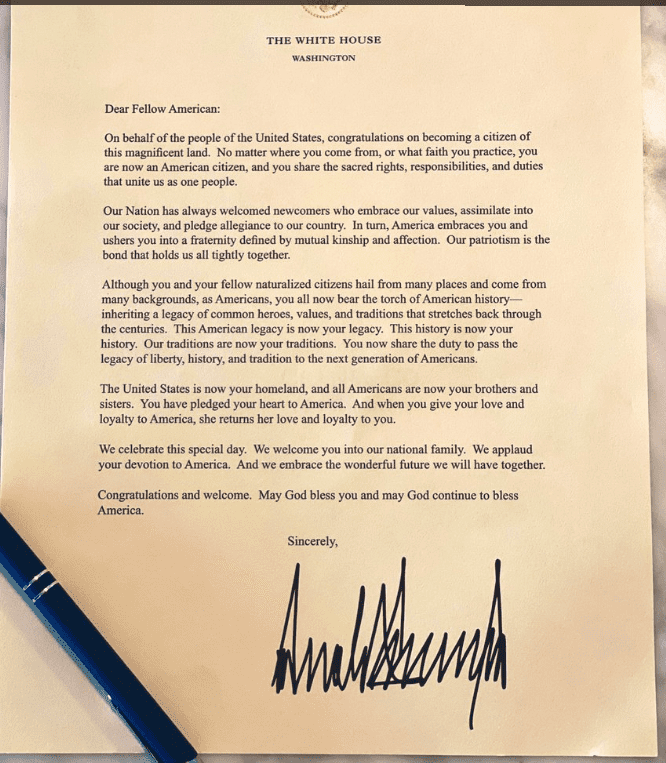 THE WHITE HOUSE
WASHINGTON
Dear Fellow American:
On behalf of the people of the United States, congratulations on becoming a citizen of
this magnificent land. No matter where you come from, or what faith you practice, you
are now an American citizen, and you share the sacred rights, responsibilities, and duties
that unite us as one people.
Our Nation has always welcomed newcomers who embrace our values, assimilate into
our society, and pledge allegiance to our country. In turn, America embraces you and
ushers you into a fraternity defined by mutual kinship and affection. Our patriotism is the
bond that holds us all tightly together.
Although you and your fellow naturalized citizens hail from many places and come from
many backgrounds, as Americans, you all now bear the torch of American history—
inheriting a legacy of common heroes, values, and traditions that stretches back through
the centuries. This American legacy is now your legacy. This history is now your
history. Our traditions are now your traditions. You now share the duty to pass the
legacy of liberty, history, and tradition to the next generation of Americans.
The United States is now your homeland, and all Americans are now your brothers and
sisters. You have pledged your heart to America. And when you give your love and
loyalty to America, she returns her love and loyalty to you.
We celebrate this special day. We welcome you into our national family. We applaud
your devotion to America. And we embrace the wonderful future we will have together.
Congratulations and welcome. May God bless you and may God continue to bless
America.
Sincerely,